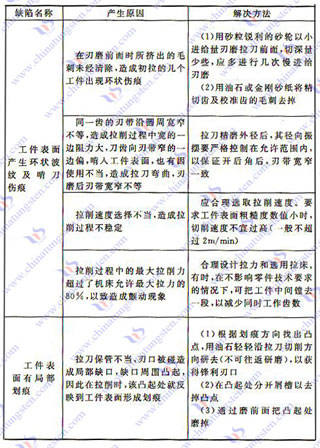 缺陷名称
产生原因
解决方法
工件表面
产生环状波
纹及啃刀
伤痕
在刃磨前面时所挤出的毛
刺未经清除，造成初拉的几个
工件出现环状伤痕
(1)用砂粒锐利的砂轮以小
进给量刃磨拉刀前面，切深量
少些，应多进行几次慢进给
刃磨
(2)用油石或金刚砂纸将精
切齿及校准齿的毛刺去掉
同一齿的刃带沿圆周宽窄
不等，造成拉削过程中宽的一
边阻力大，刀齿向刃带窄的一
边偏，啃入工件表面，也有因
使用不当，造成拉刀弯曲，刃
磨后刃带宽窄不等
拉刀精磨外径后，其径向振
摆要严格控制在允许范围内，
以保证开后角后，刃带宽窄
一致
拉削速度选择不当，造成拉
削过程不稳定
应合理选取拉削速度、要
求工件表面粗糙度数值小时，
切削速度不宜过高(一般不超
过2m/min)
拉削过程中的最大拉削力
超过了机床允许最大拉力的
80%，以致造成颤动现象
合理设计拉刀和选用拉床，
有时，在不影响零件技术要求
的情况下，可把工件中间镗去
一段，以减少同时工作齿数
工件表
面有局部
划痕
拉刀保管不当，刃口被碰造
成局部缺口，缺口周围凸起，
因此在拉削时，该凸起处就反
映到工件表面形成划痕
(1)根据划痕方向找出凸
点，用油石轻轻沿拉刀切削方
向研去(不可往返研磨)，以获
得锋利刃口
(2)在凸起处分开屑槽以去
掉凸点
(3)通过磨前面把凸起处
磨掉
www.chinatungsten.com